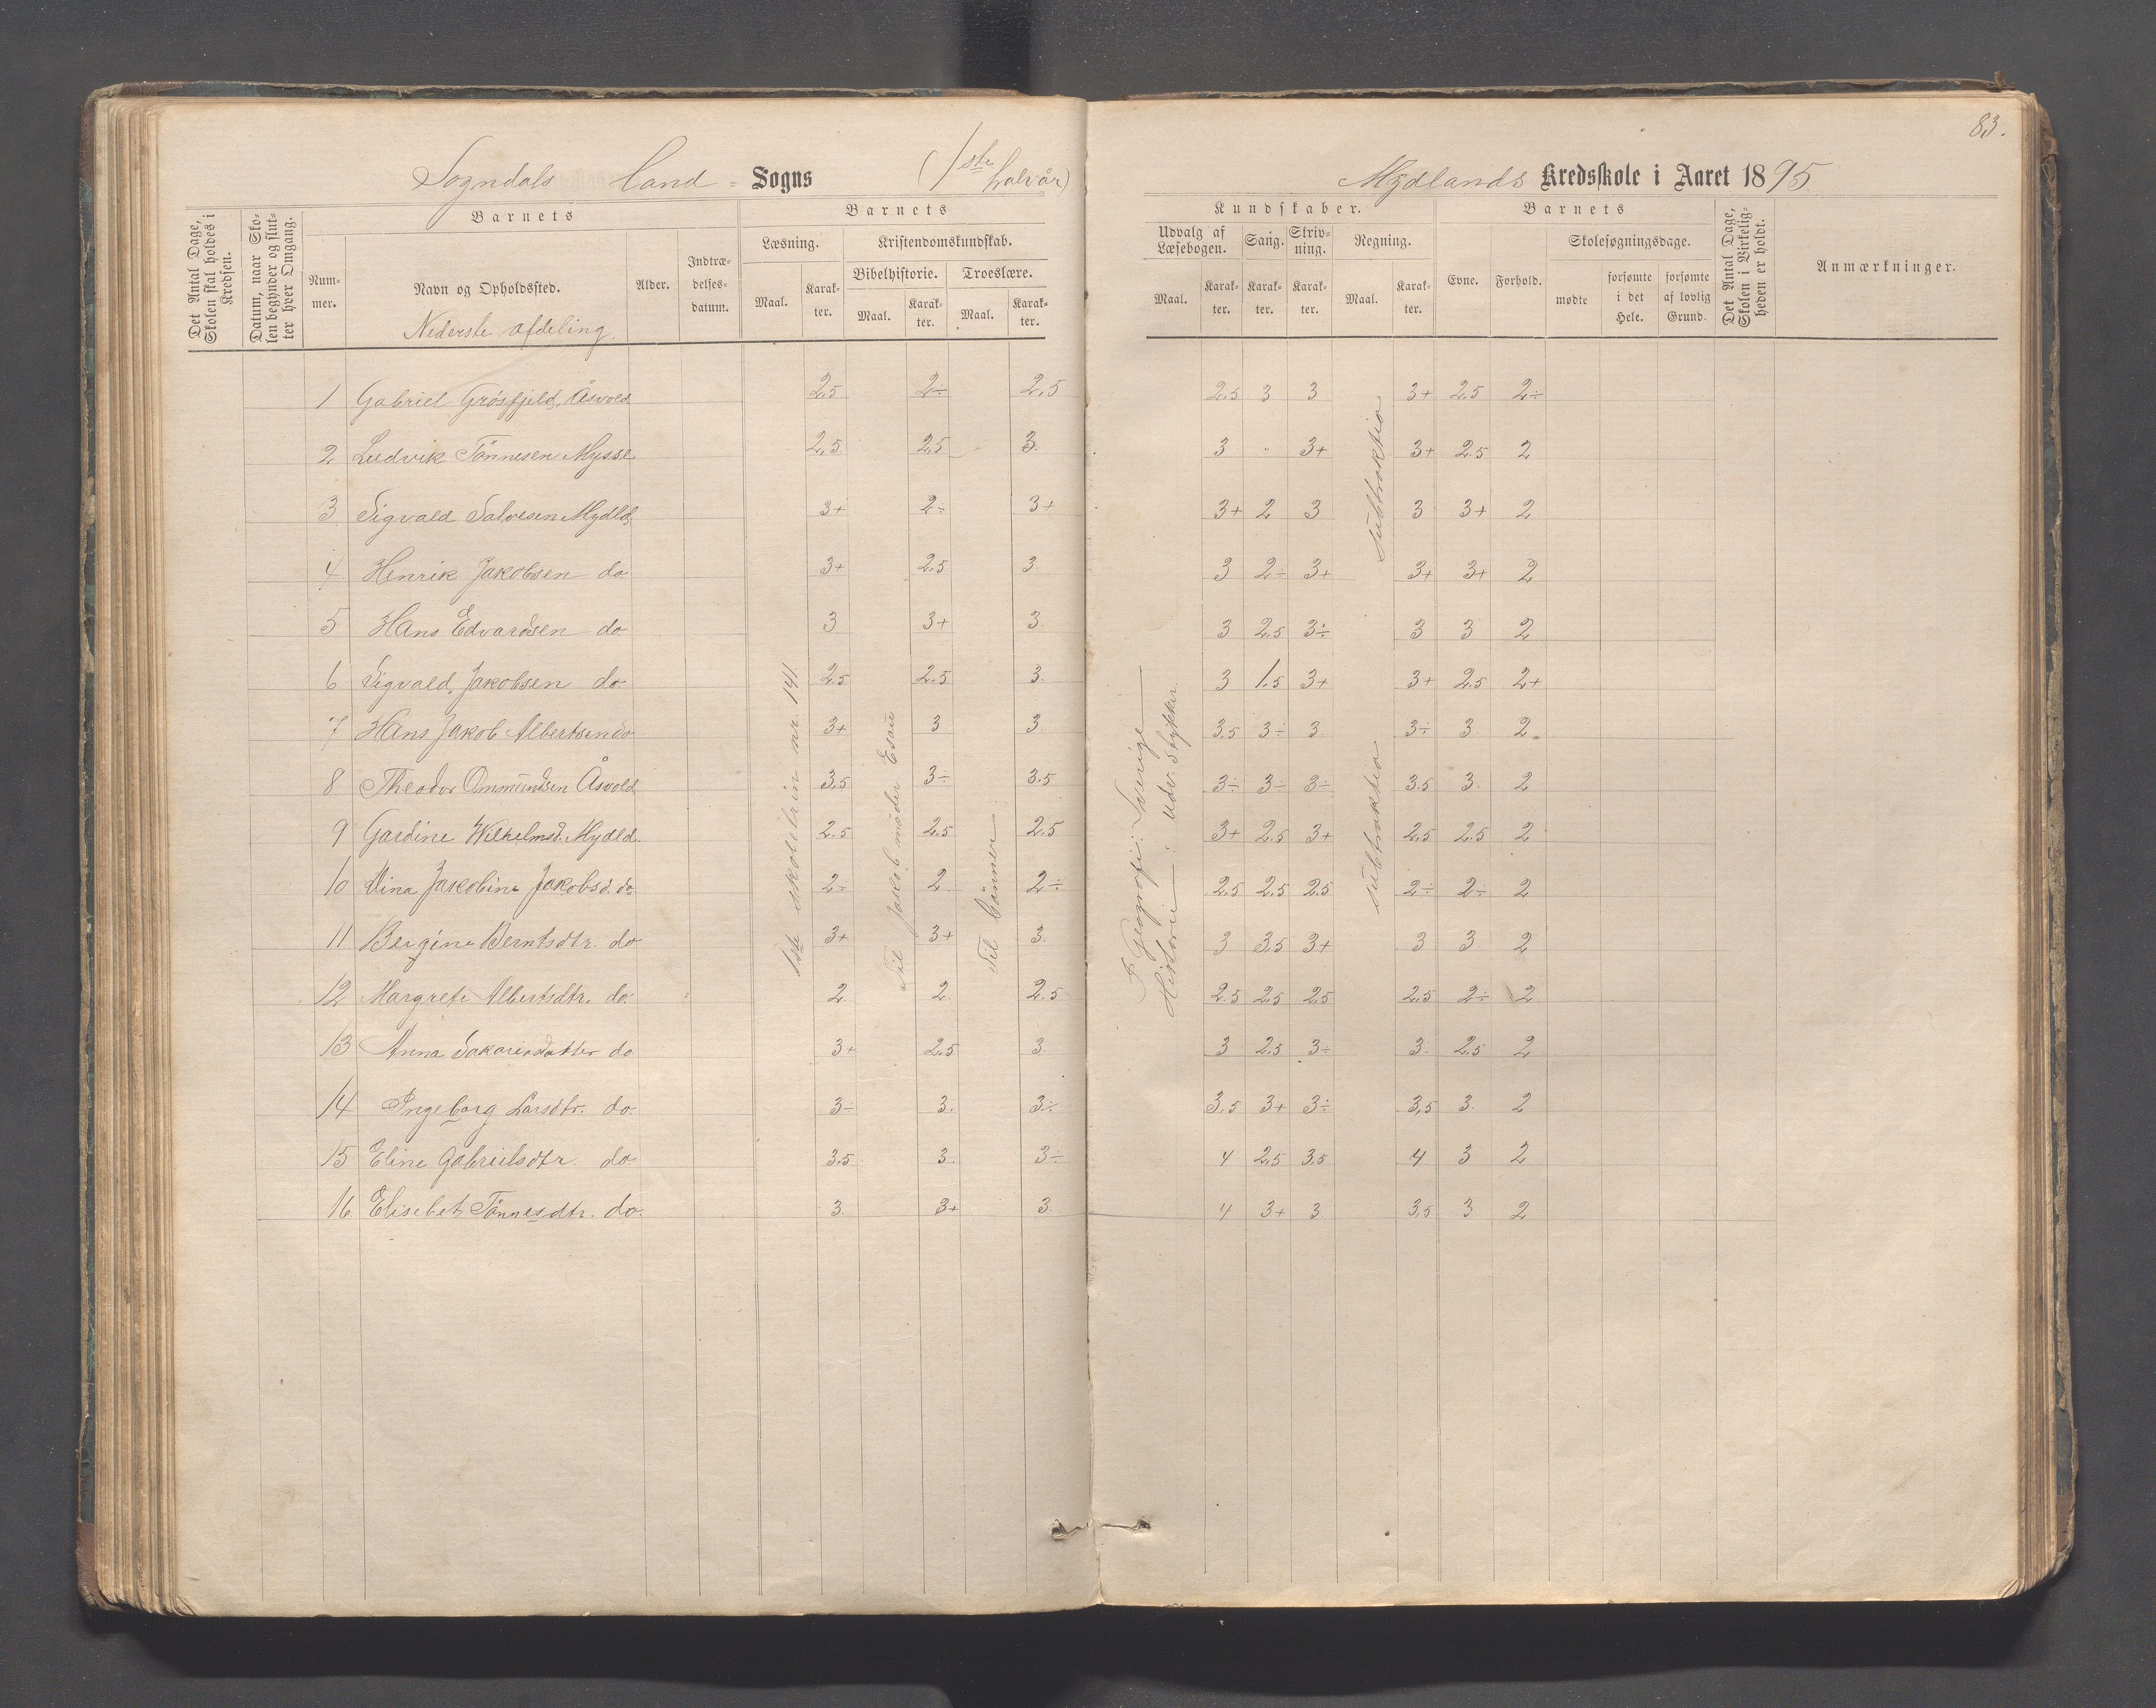 83.
Sogndals land - Sogns (1ste halvår)
Mydlands Kredsskole i Aaret 1895.
Det Antal Dage, Skolen skal holdes i Kredsen.
Datum, naar Skolen begynder og slutter hver Omgang.
Barnets
Nummer.
Navn og Opholdssted.
Nederste afdeling.
Alder.
Indtrædelsesdatum.
Barnets
Læsning.
Kristendomskundskab.
Bibelhistorie.
Troeslære.
Maal.
Karakter.
Maal.
Karakter.
Maal.
Karakter.
Kundskaber.
Udvalg af Læsebogen.
Sang.
Skrivning.
Regning.
Maal.
Karakter.
Karakter.
Karakter.
Maal.
Karakter.
Barnets
Evne.
Forhold.
Skolesøgningsdage.
mødte
forsømte i det Hele.
forsømte af lovlig Grund.
Det Antal Dage, Skolen i Virkeligheden er holdt.
Anmærkninger.
1 Gabriel Grösfjeld, Åsvold 2.5 2÷ 2.5 2.5 3 3 3+ 2.5 2÷
2 Ludvik Tönnesen Mysse 2.5 2.5 3. 3 - 3+ 3+ 2.5 2
3 Sigvald Salvesen Mydld. 3+ 2÷ 3+ 3+ 2 3 3 3+ 2
4 Henrik Jakobsen do 3+ 2.5 3 3 2÷ 3+ 3+ 3+ 2
5 Hans Edvardsen do 3 3+ 3. 3 2.5 3÷ 3 3 2
6 Sigvald Jakobsen do 2.5 2.5 3. 3 1.5 3+ 3+ 2.5 2+
7 Hans Jakob Albertsen do 3+ 3 3. 3.5 3÷ 3 3÷ 3. 2
8 Theodor Ommundsen Åsvold 3.5 3÷ 3.5 3÷ 3÷ 3÷ 3.5 3. 2
9 Gardine Wilhelmsd. Mydld. 2.5 2.5 2.5 3+ 2.5 3+ 2.5 2.5 2
10 Mina Jakobine Jakobsd. do 2÷ 2 2÷ 2.5 2.5 2.5 2÷ 2÷ 2
11 Bergine Berntsdtr. do 3+ 3+ 3. 3 3.5 3+ 3 3. 2
12 Margrete Albertsdtr. do. 2 2 2.5 2.5 2.5 2.5 2.5 2÷ 2
13 Anna Sakariasdatter do 3+ 2.5 3. 3 2.5 3÷ 3. 2.5 2
14 Ingeborg Larsdtr. do 3÷ 3. 3÷ 3.5 3+ 3÷ 3.5 3. 2
15 Eline Gabrielsdtr. do 3.5 3. 3÷ 4 2.5 3.5 4 3 2
16 Elisebet Tönnesdtr. do. 3 3+ 3 4 3+ 3 3.5 3 2
1ste skoletrin nr. 141.
Til Jakob møder Esau
Til bönnen
I Geografi: Sverige
Historie: Udv. Stykker.
Subtraktion
Subtraktion